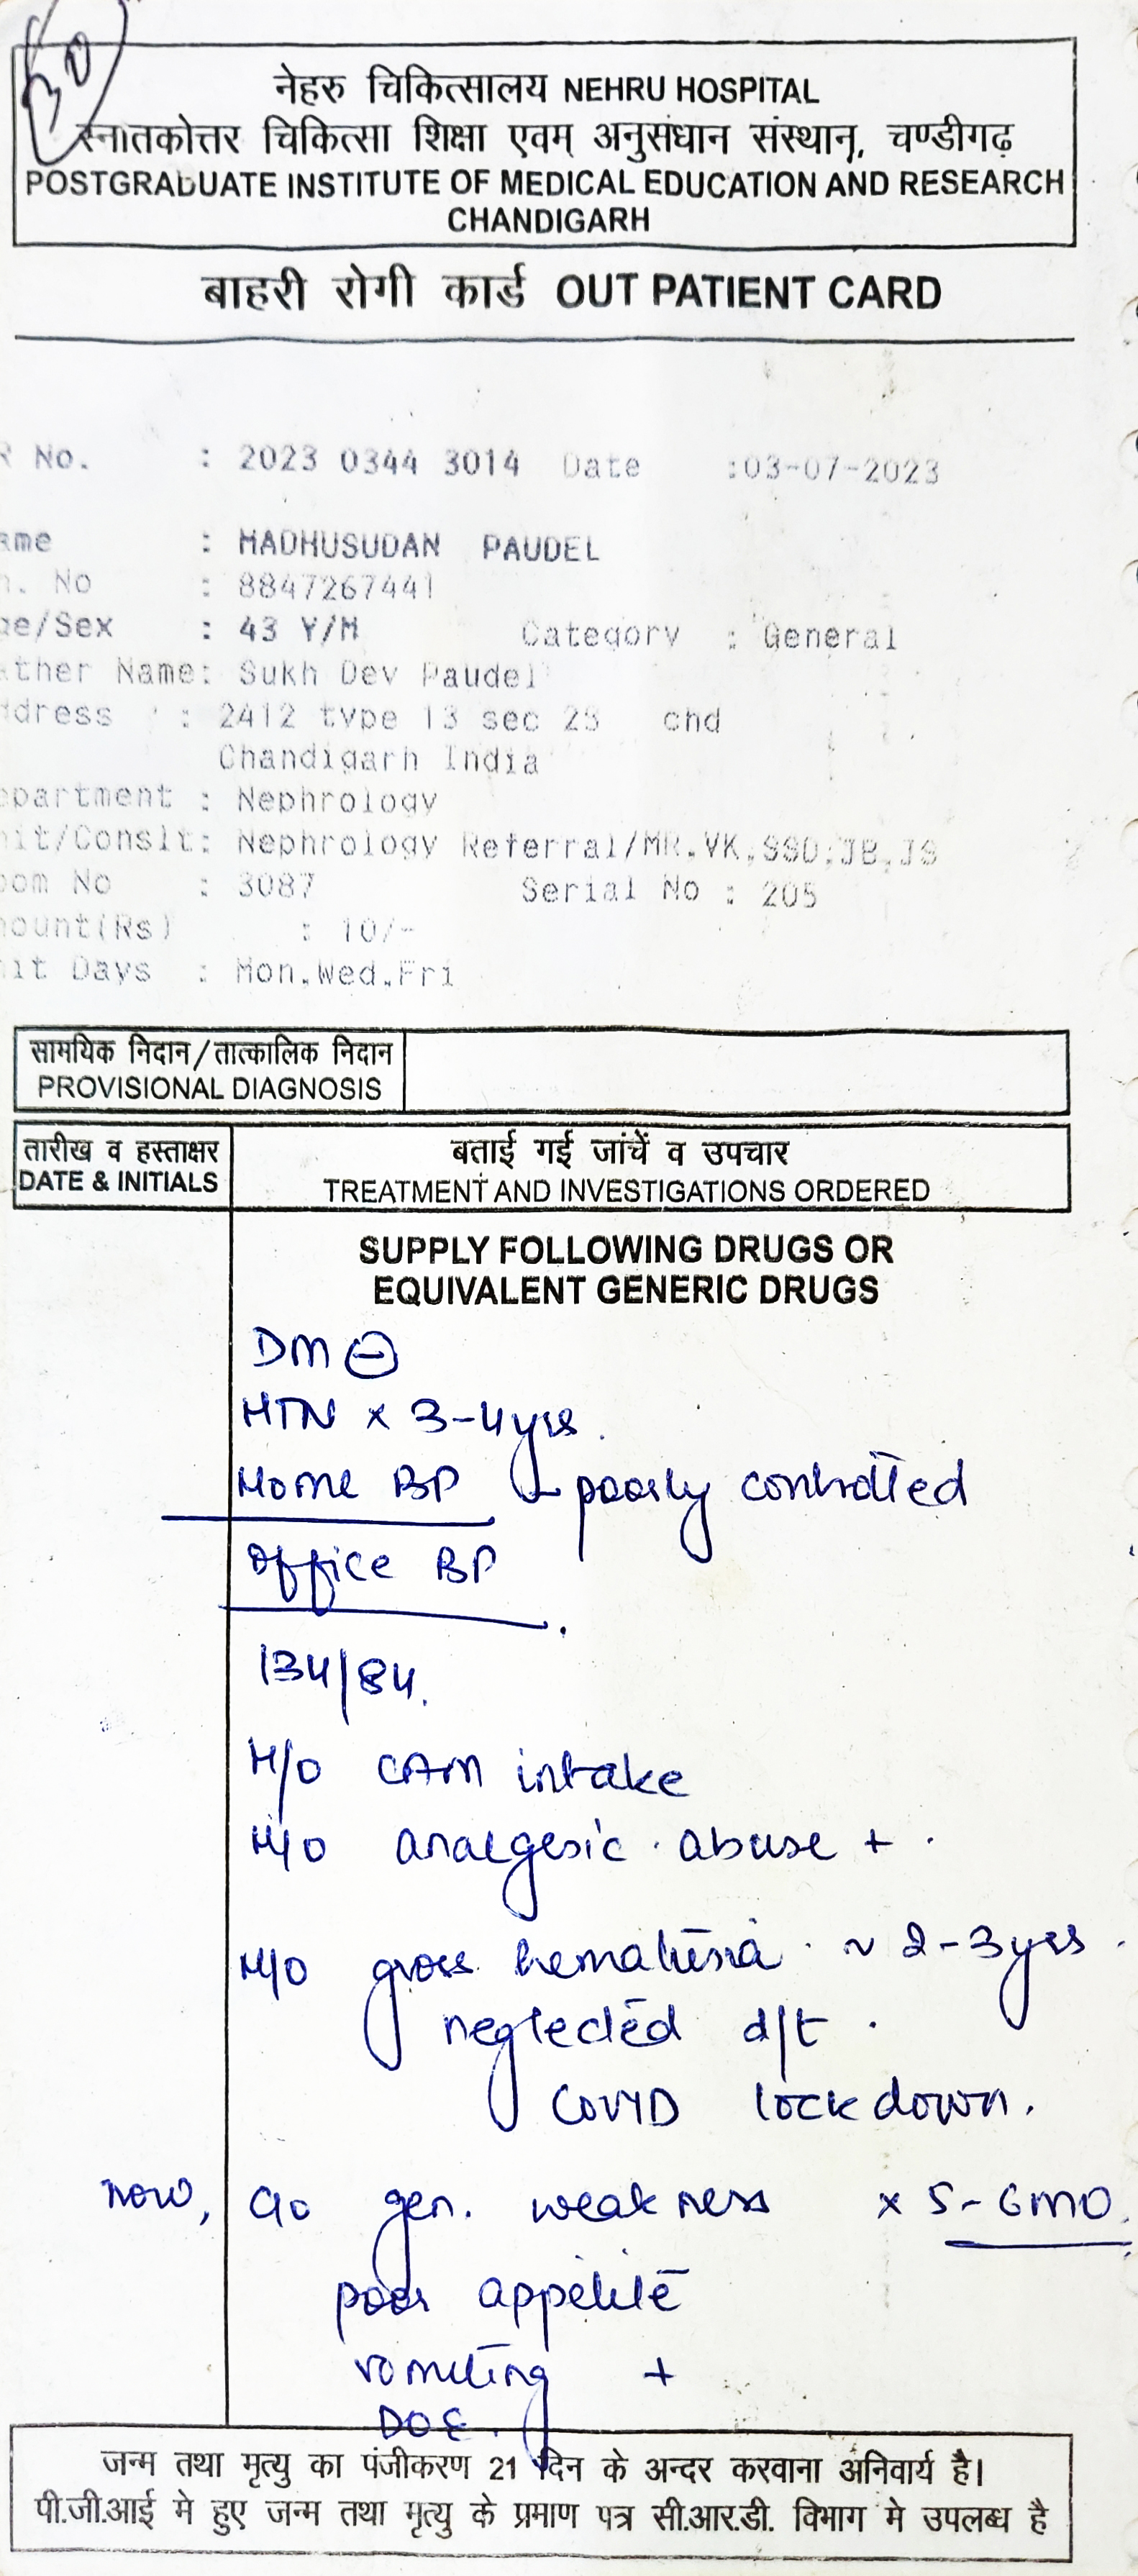 नेहरु चिकित्सालय NEHRU HOSPITAL
स्नातकोत्तर चिकित्सा शिक्षा एवम् अनुसंधान संस्थान, चण्डीगढ़
POSTGRADUATE INSTITUTE OF MEDICAL EDUCATION AND RESEARCH
CHANDIGARH
बाहरी रोगी कार्ड OUT PATIENT CARD
R No. : 2023 0344 3014 Date :03-07-2023
ame : MADHUSUDAN PAUDEL
h. No : 8847267441
ge/Sex : 43 Y/M Category : General
ather Name: Sukh Dev Paudel
ddress : 2412 type 13 sec 25 chd
Chandigarh India
epartment : Nephrology
nit/Conslt: Nephrology Referral/MR,VK,SSD,JB,JS
oom No : 3087 Serial No : 205
mount(Rs) : 10/-
nit Days : Mon,Wed,Fri
सामयिक निदान/तात्कालिक निदान
PROVISIONAL DIAGNOSIS
तारीख व हस्ताक्षर
DATE & INITIALS
बताई गई जांचें व उपचार
TREATMENT AND INVESTIGATIONS ORDERED
SUPPLY FOLLOWING DRUGS OR
EQUIVALENT GENERIC DRUGS
DM ⊖
HTN x 3-4yrs.
Home BP poorly controlled
Office BP
134/84.
H/O CAM intake
H/O analgesic abuse +
H/O gross hematuria ~ 2-3yrs.
neglected d/t
COVID lockdown.
now, C/o gen. weakness x 5-6mo.
poor appetite
vomiting +
DOE.
जन्म तथा मृत्यु का पंजीकरण 21 दिन के अन्दर करवाना अनिवार्य है।
पी.जी.आई मे हुए जन्म तथा मृत्यु के प्रमाण पत्र सी.आर.डी. विभाग मे उपलब्ध है